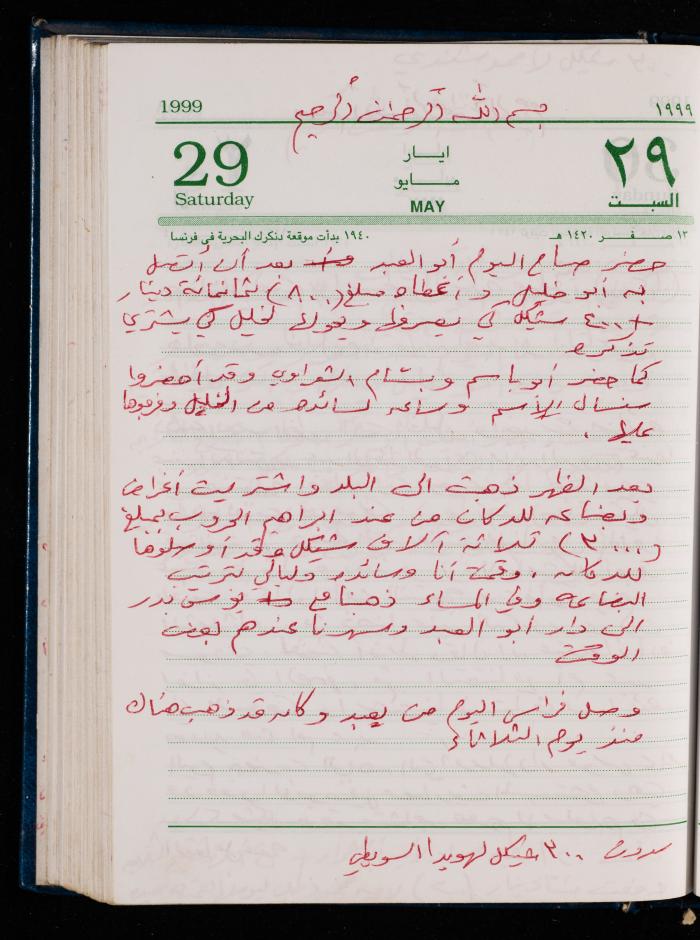 بسم الله الرحمن الرحيم
1999 ١٩٩٩
29 ايار ٢٩
Saturday مايو السبت
MAY
١٣ صفر ١٤٢٠ هـ ١٩٤٠ بدأت موقعة دنكرك البحرية في فرنسا
حضر صباح اليوم أبو العبد بعد أن أتصل
به أبو خليل و أعطاه مبلغ (٨٠٠) ثمانمائة دينار
+ ٤٠٠ شيكل كي يصرفها ويحولها لخليل كي يشتري
تذكرة
كما حضر أبو باسم وبسام الشعراوي وقد أحضروا
سنسال الإسم وساعة لسائدة من الخليل وفرجوها
عليها .
بعد الظهر ذهبت الى البلد واشتريت أغراض
وبضاعة للدكان من عند ابراهيم الحروب بمبلغ
(٣٠٠٠) ثلاثة آلاف شيكل وقد أوصلوها
للدكان . وقمت أنا وسائدة وليالي بترتيب
البضاعة وفي المساء ذهبنا مع يونس بدر
الى دار أبو العبد وسهرنا عندهم بعض
الوقت
وصل فراس اليوم من يعبد وكان قد ذهب هناك
منذ يوم الثلاثاء
سددت ٣٠٠ شيكل لهويدا السويطي